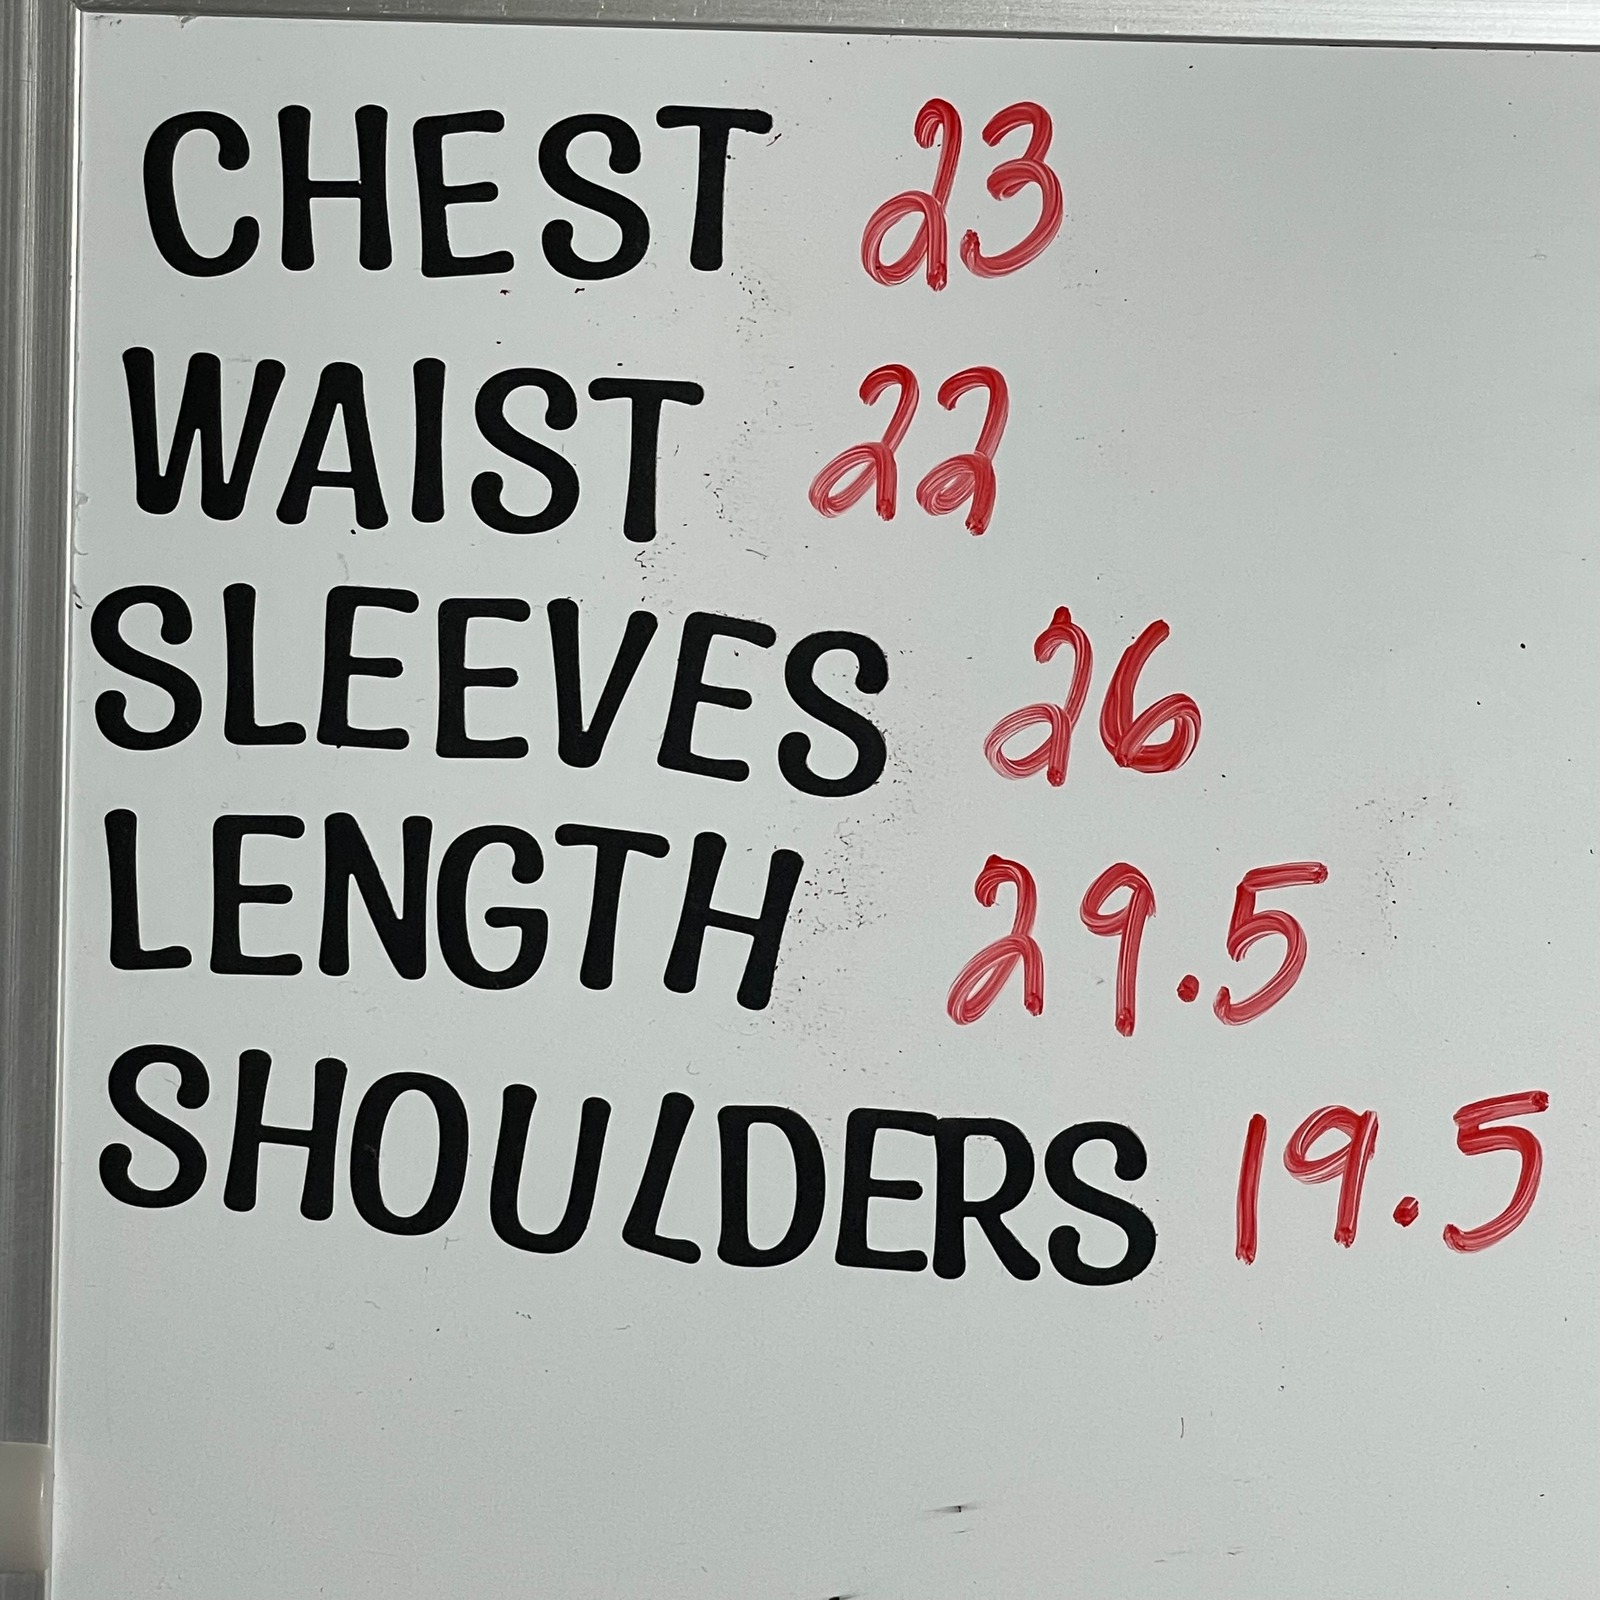 CHEST 23
WAIST 22
SLEEVES 26
LENGTH 29.5
SHOULDERS 19.5